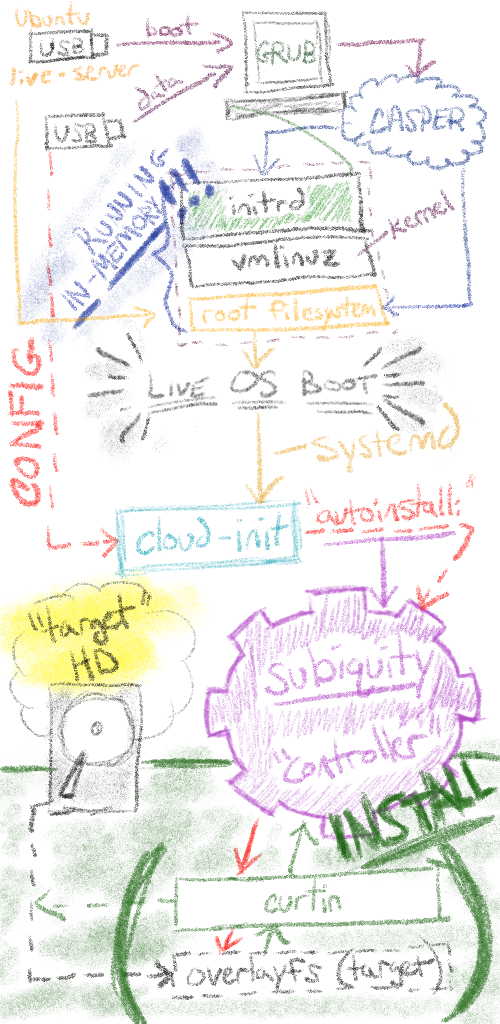 Ubuntu
USB
live-server
boot
data
USB
GRUB
CASPER
RUNNING
IN-MEMORY!!!
initrd
vmlinuz
kernel
root filesystem
LIVE OS BOOT
systemd
CONFIG
cloud-init
"autoinstall:"
"target"
HD
subiquity
"controller
INSTALL
curtin
overlayFs (target)